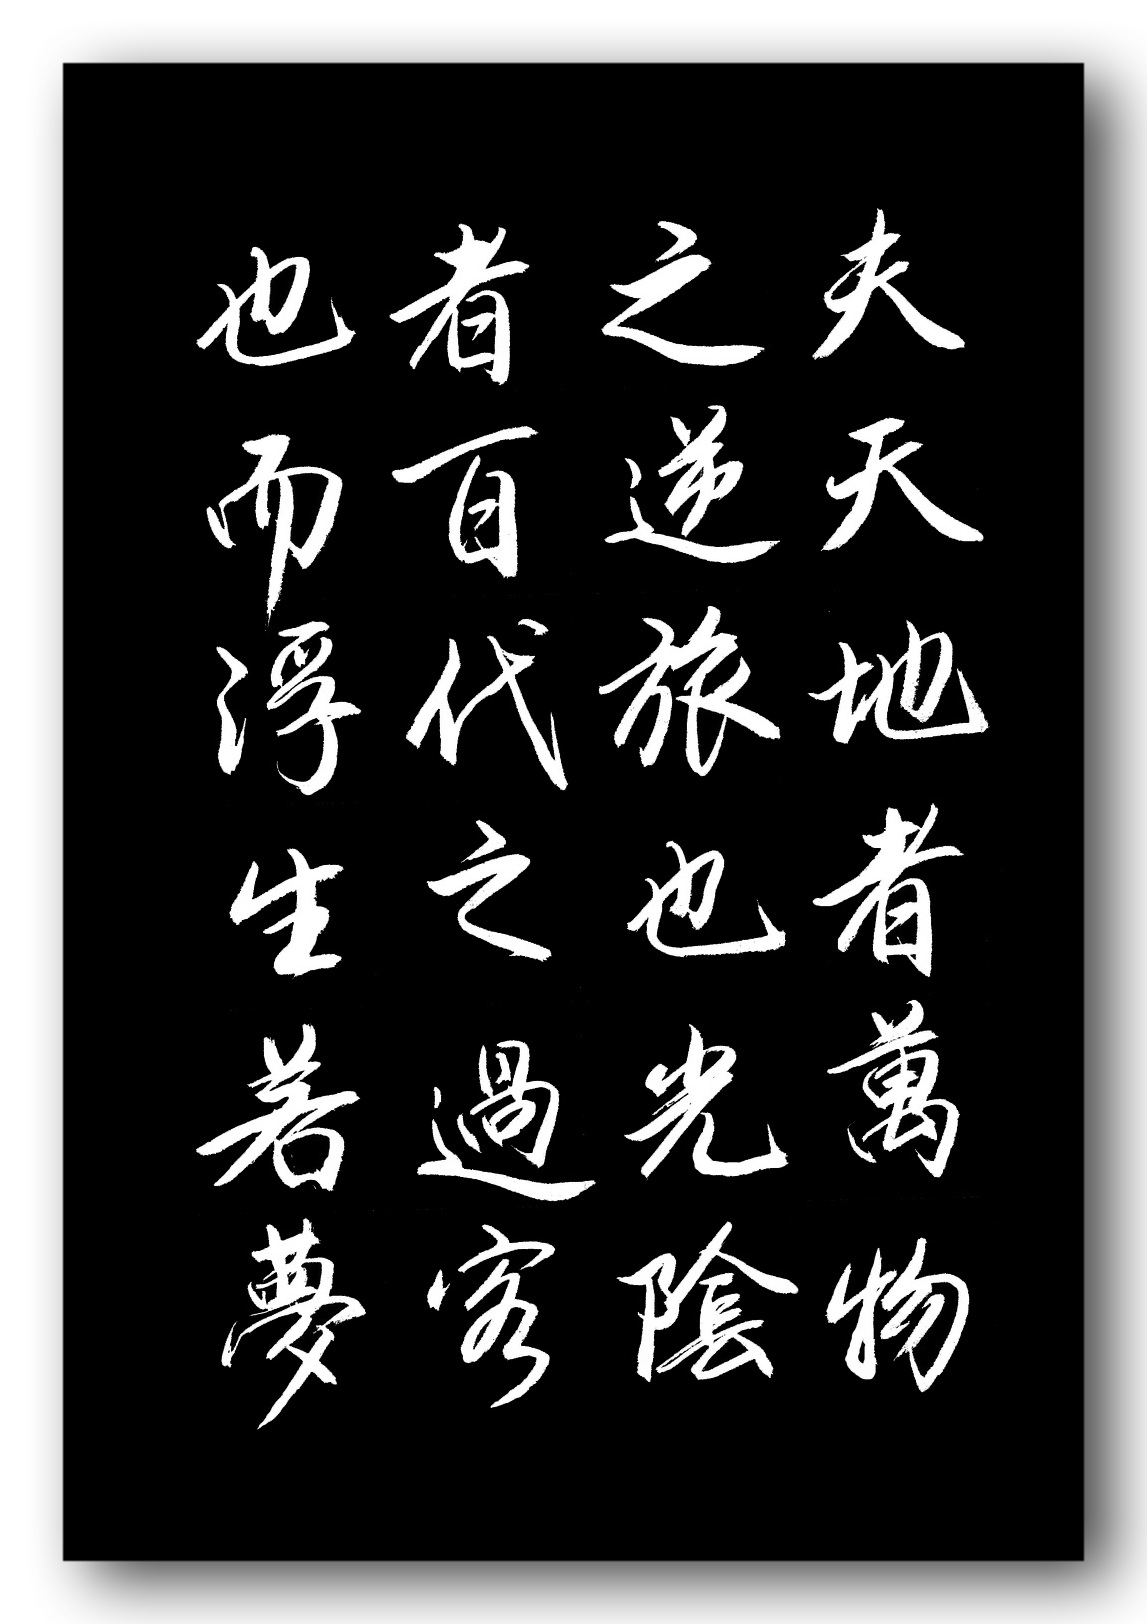 夫天地者萬物
之逆旅也光陰
者百代之過客
也而浮生若夢